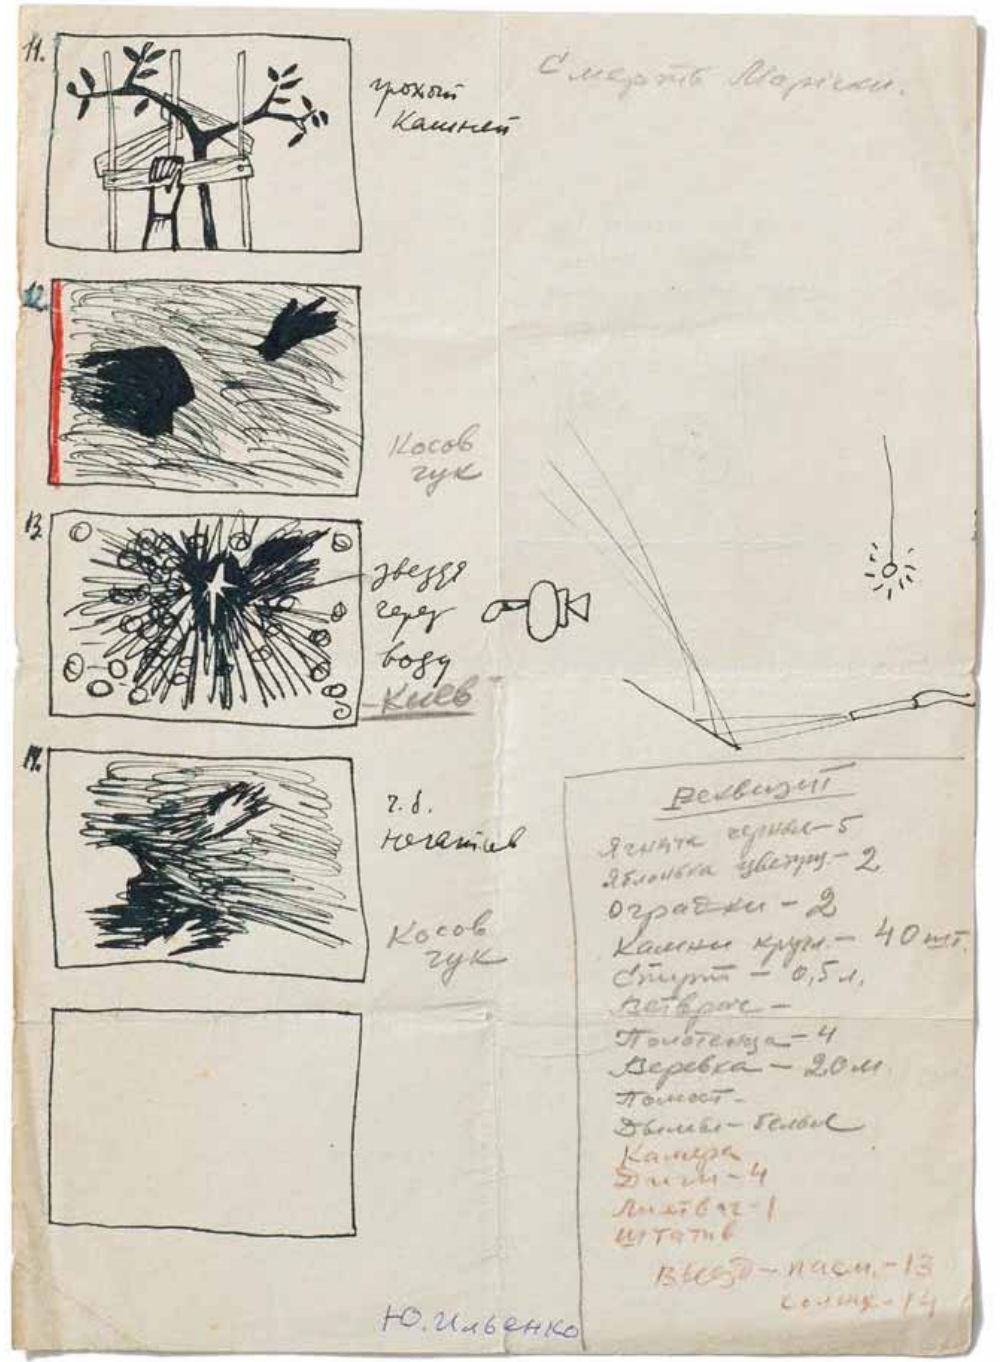 Смерть Марiчки.
11.
грохот
Камней
12.
Косов
гук
13.
звезда
через
воду
Киев
14.
ч. б.
негатив
Косов
гук
Реквизит
Ягнята черные - 5
Яблонька цветущ. - 2
Оградки - 2
Камни кругл. - 40 шт.
Спирт - 0,5 л.
Ветврач -
Полотенца - 4
Веревка - 20 м.
Помост -
Дымы - белые
Камера
Диги - 4
Лихтваг - 1
Штатив
Выезд - пасм. - 13
солнц. - 14
Ю. Ильенко